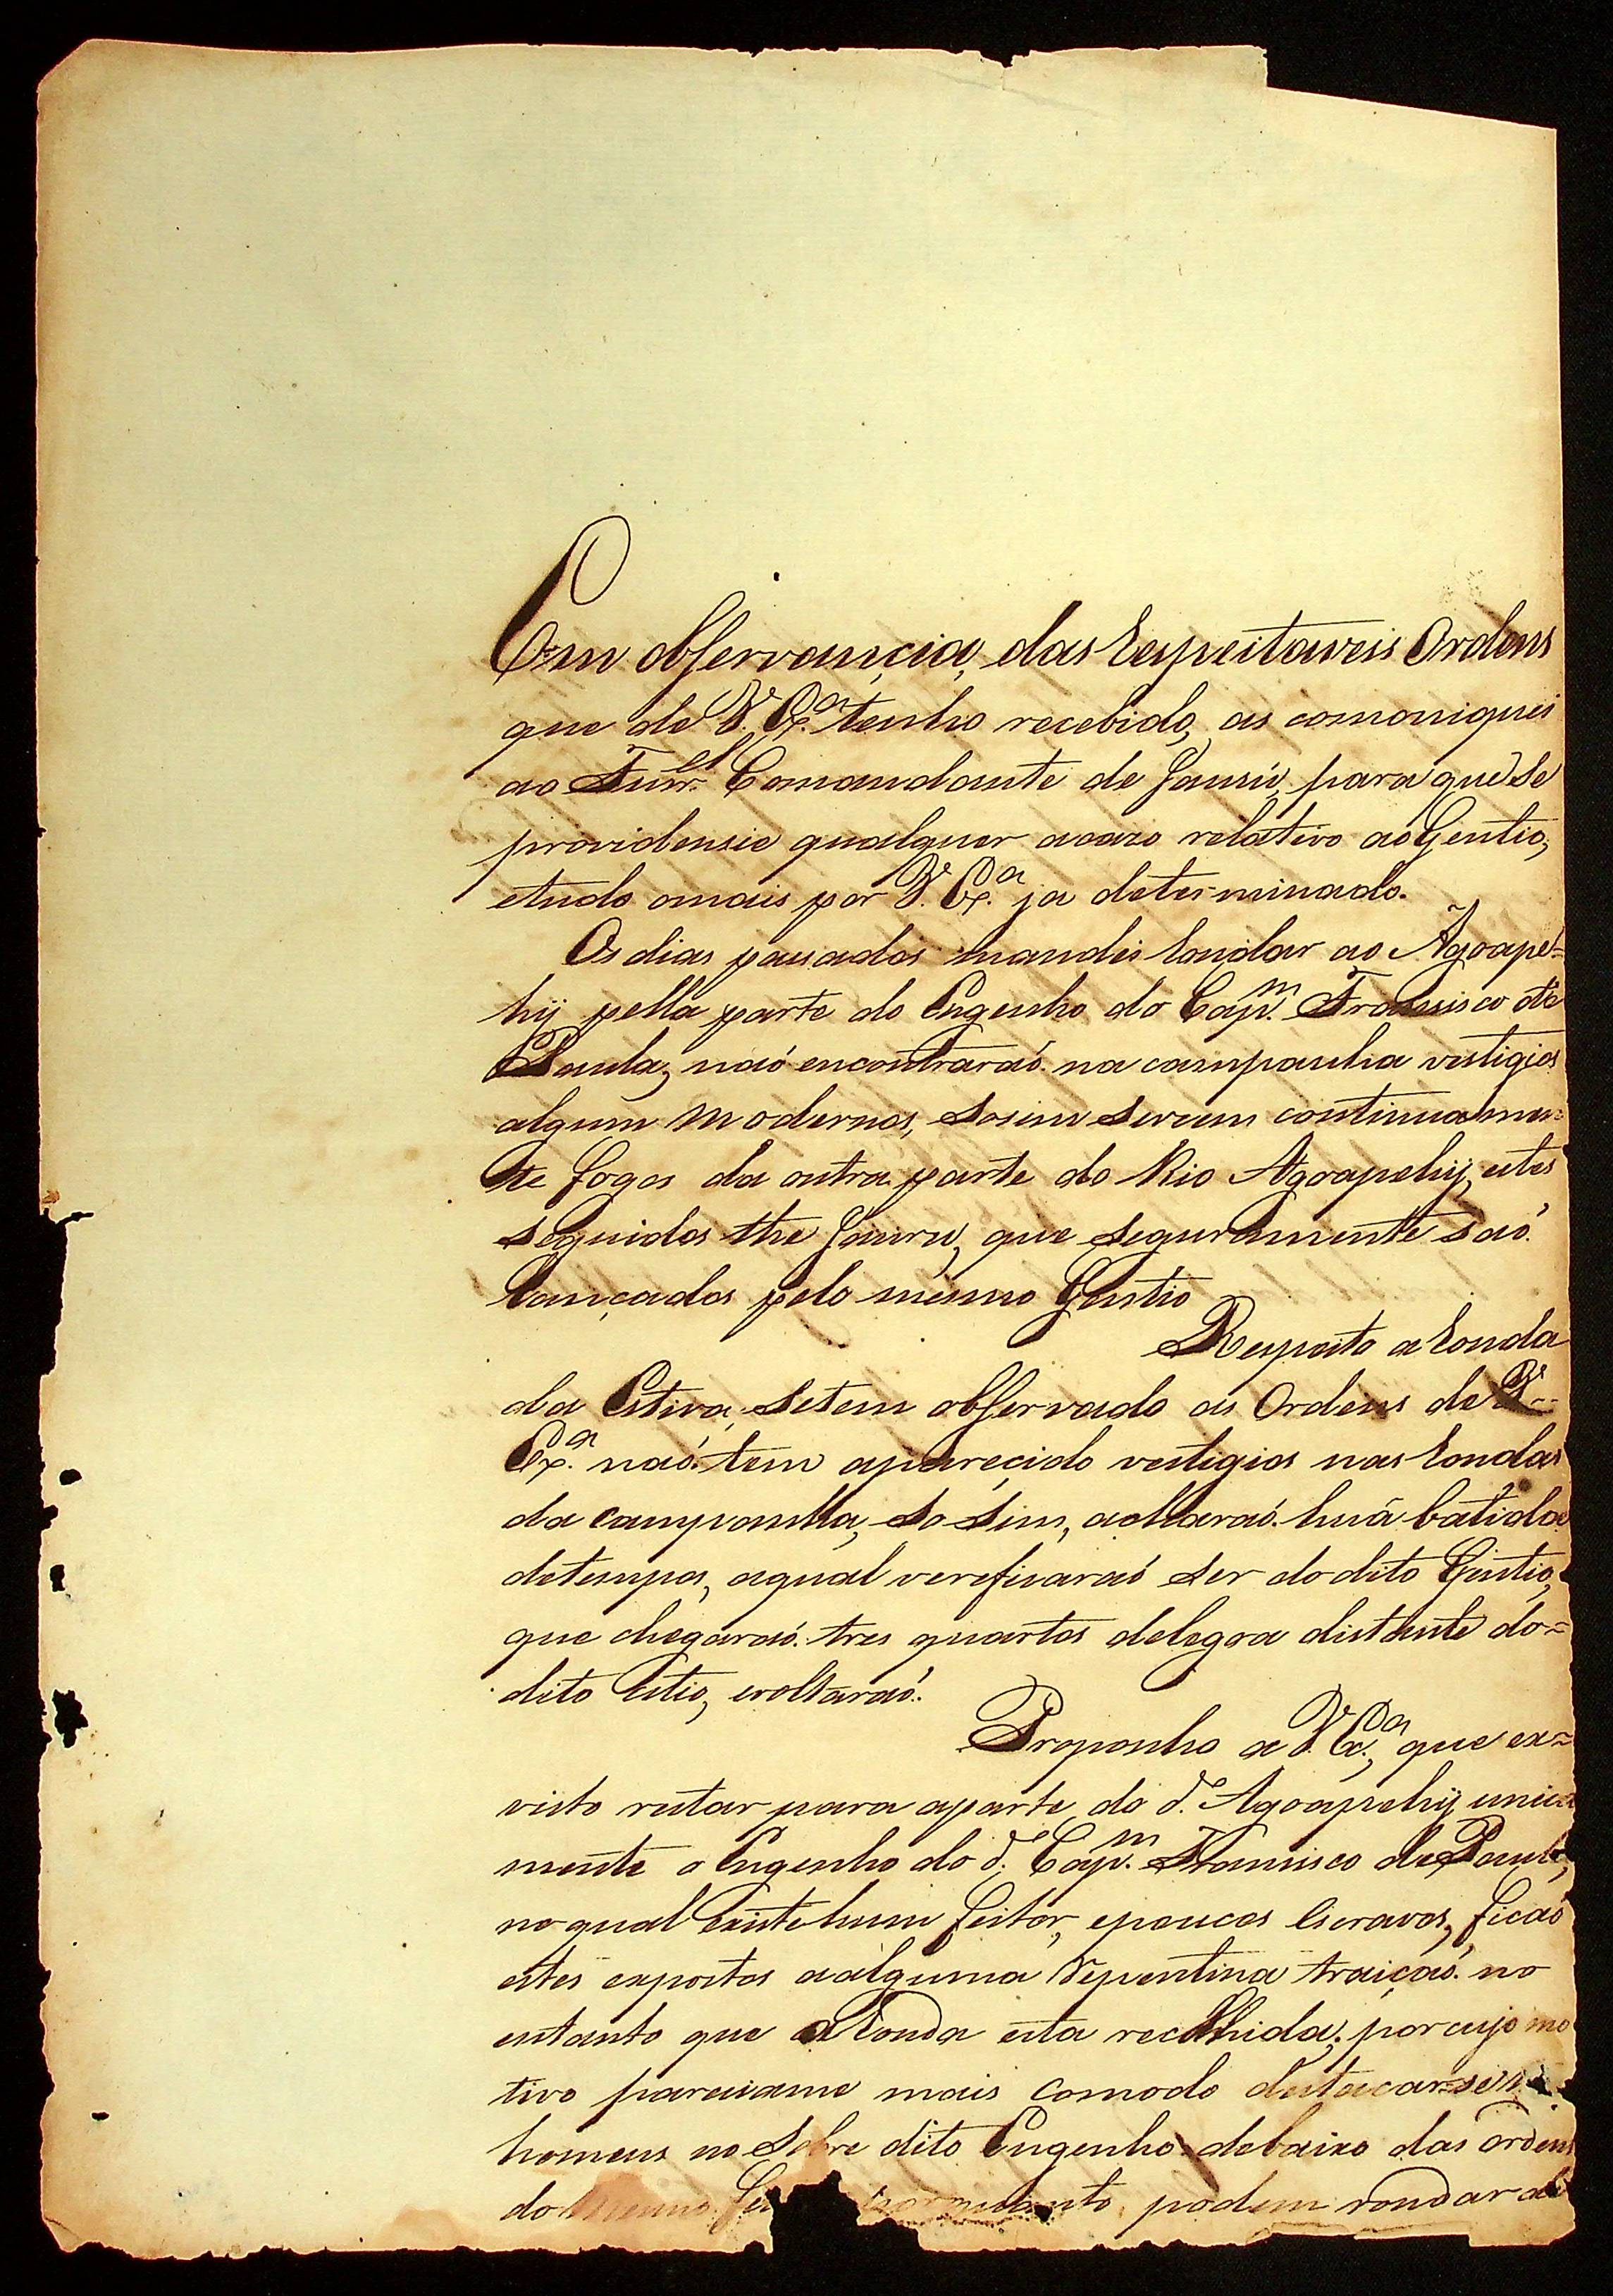 Em observancia, das Respeitaveis Ordens
que de V. Exª. tenho recebido, as comoniquei
ao Furrel. Comandante de Jaurú, para que se
providensie qualquer acazo relativo ao Gentio,
etudo omais por V. Exª. ja determinado.
Os dias passados mandei Rondar ao Agoape=
hÿ pella parte do Engenho do Capm. Francisco de
Paula, naó encontraraó na campanha vestigios
algum modernos, Sosim Severem continuamen=
te fogos da outra parte do Rio Agoapehÿ, estes
seguidos the Jauru, que seguramente saó
lançados pelo mesmo Gentio
Respeito a Ronda
da Estiva, Setem observado as Ordens de V.
Exª. naó tem apareçido vestigios nas Rondas
da campanha, So Sim, acharaó huã batida
detempos, aqual vereficaraó Ser dodito Gentio,
que chegaraó tres quartos delegoa distante do=
dito Citio, evoltaraó.
Proponho a V. Exª, que ex=
visto restar para aparte do d.º Agoapehÿ unica
mente o Engenho do d.º Capm. Francisco de Paula,
no qual Existe hum feitor, epoucos Escravos, ficaó
estes expostos aalguma Repentina traiçaó no
entanto que aRonda esta recolhida; por cujo mo
tivo pareciame mais comodo destacar=se
homens no Sobre dito Engenho debaixo das ordens
do mesmo podem rondar